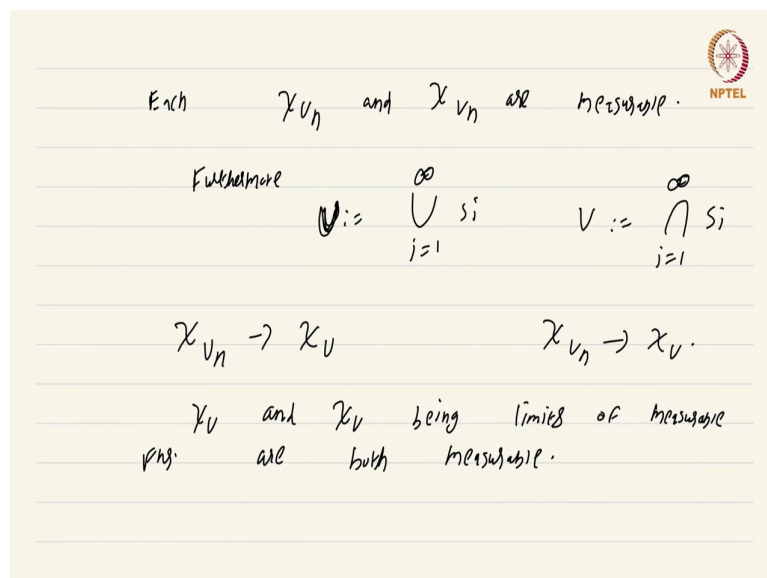 NPTEL
Each χ_{U_n} and χ_{V_n} are measurable.
Furthermore
U := ⋃_{j=1}^{∞} S_j V := ⋂_{j=1}^{∞} S_j
χ_{U_n} → χ_U χ_{V_n} → χ_V.
χ_U and χ_V being limits of measurable
fns. are both measurable.